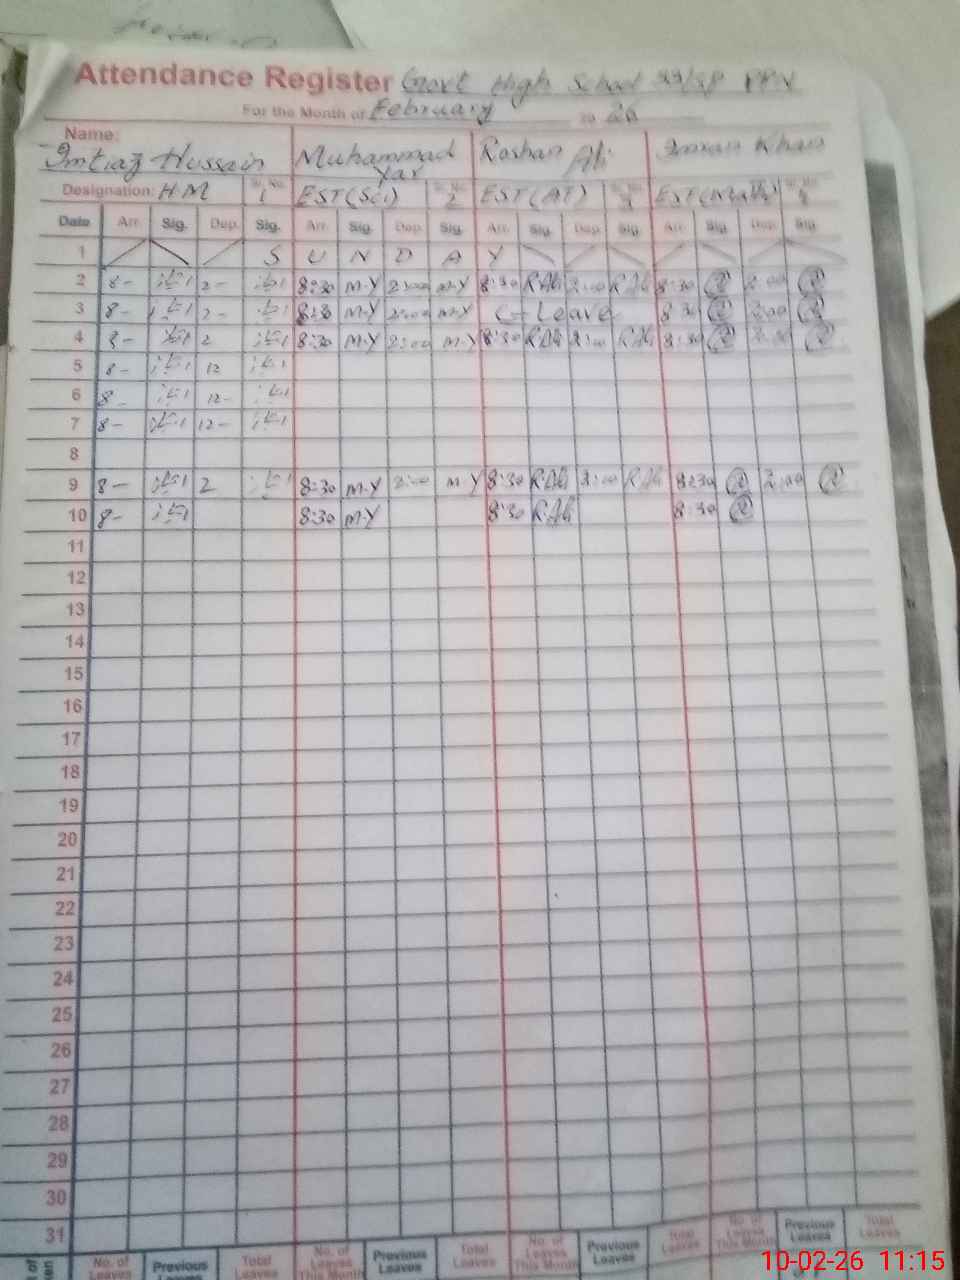 Attendance Register Govt High School 33/SP PPN
For the Month of February 20 26
Name: Imtiaz Hussain Muhammad Yar Roshan Ali Imran Khan
Designation: HM Sr. No. 1 EST(Sci) 2 EST(AT) 3 EST(Math)
Date Arr. Sig. Dep. Sig. Arr. Sig. Dep. Sig. Arr. Sig. Dep. Sig. Arr. Sig. Dep. Sig.
1 S U N D A Y
2 8- 2- 8:30 M-Y 2:00 M-Y 8:30 R.Ali 2:00 R.Ali 8:30 2:00
3 8- 2- 8:30 M-Y 2:00 M-Y C-Leave 8:30 2:00
4 8- 2 8:30 M-Y 2:00 M-Y 8:30 R.Ali 2:00 R.Ali 8:30 2:00
5 8- 12
6 8- 12-
7 8- 12-
8
9 8- 2 8:30 M-Y 2:00 M-Y 8:30 R.Ali 2:00 R.Ali 8:30 2:00
10 8- 8:30 M-Y 8:30 R.Ali 8:30
11
12
13
14
15
16
17
18
19
20
21
22
23
24
25
26
27
28
29
30
31
No. of Leaves Previous Leaves Total Leaves No. of Leaves This Month Previous Leaves Total Leaves No. of Leaves This Month Previous Leaves Total Leaves No. of Leaves This Month Previous Leaves Total Leaves
10-02-26 11:15